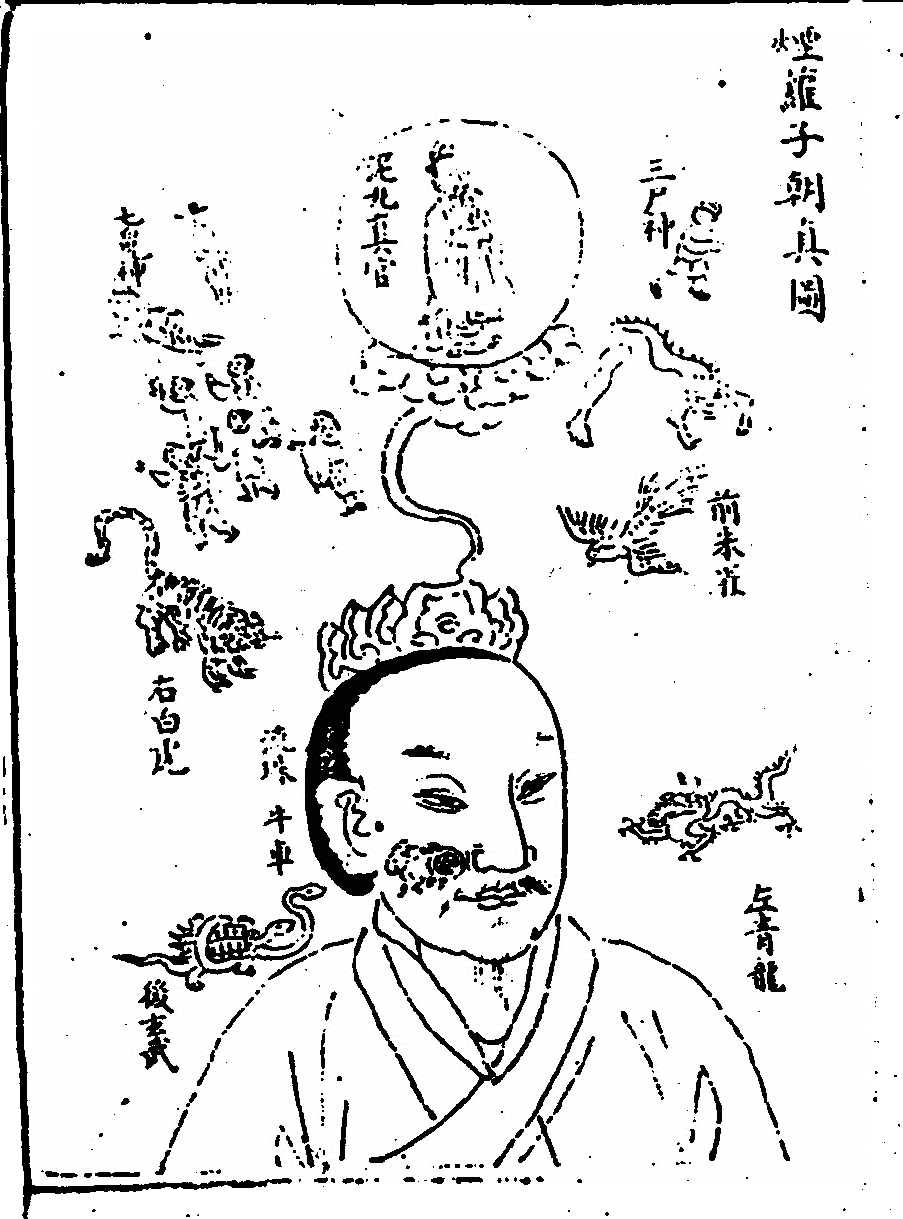 煙蘿子朝真圖
三尸神
泥丸真宮
七魄神
前朱雀
右白虎
牛車
左青龍
後玄武